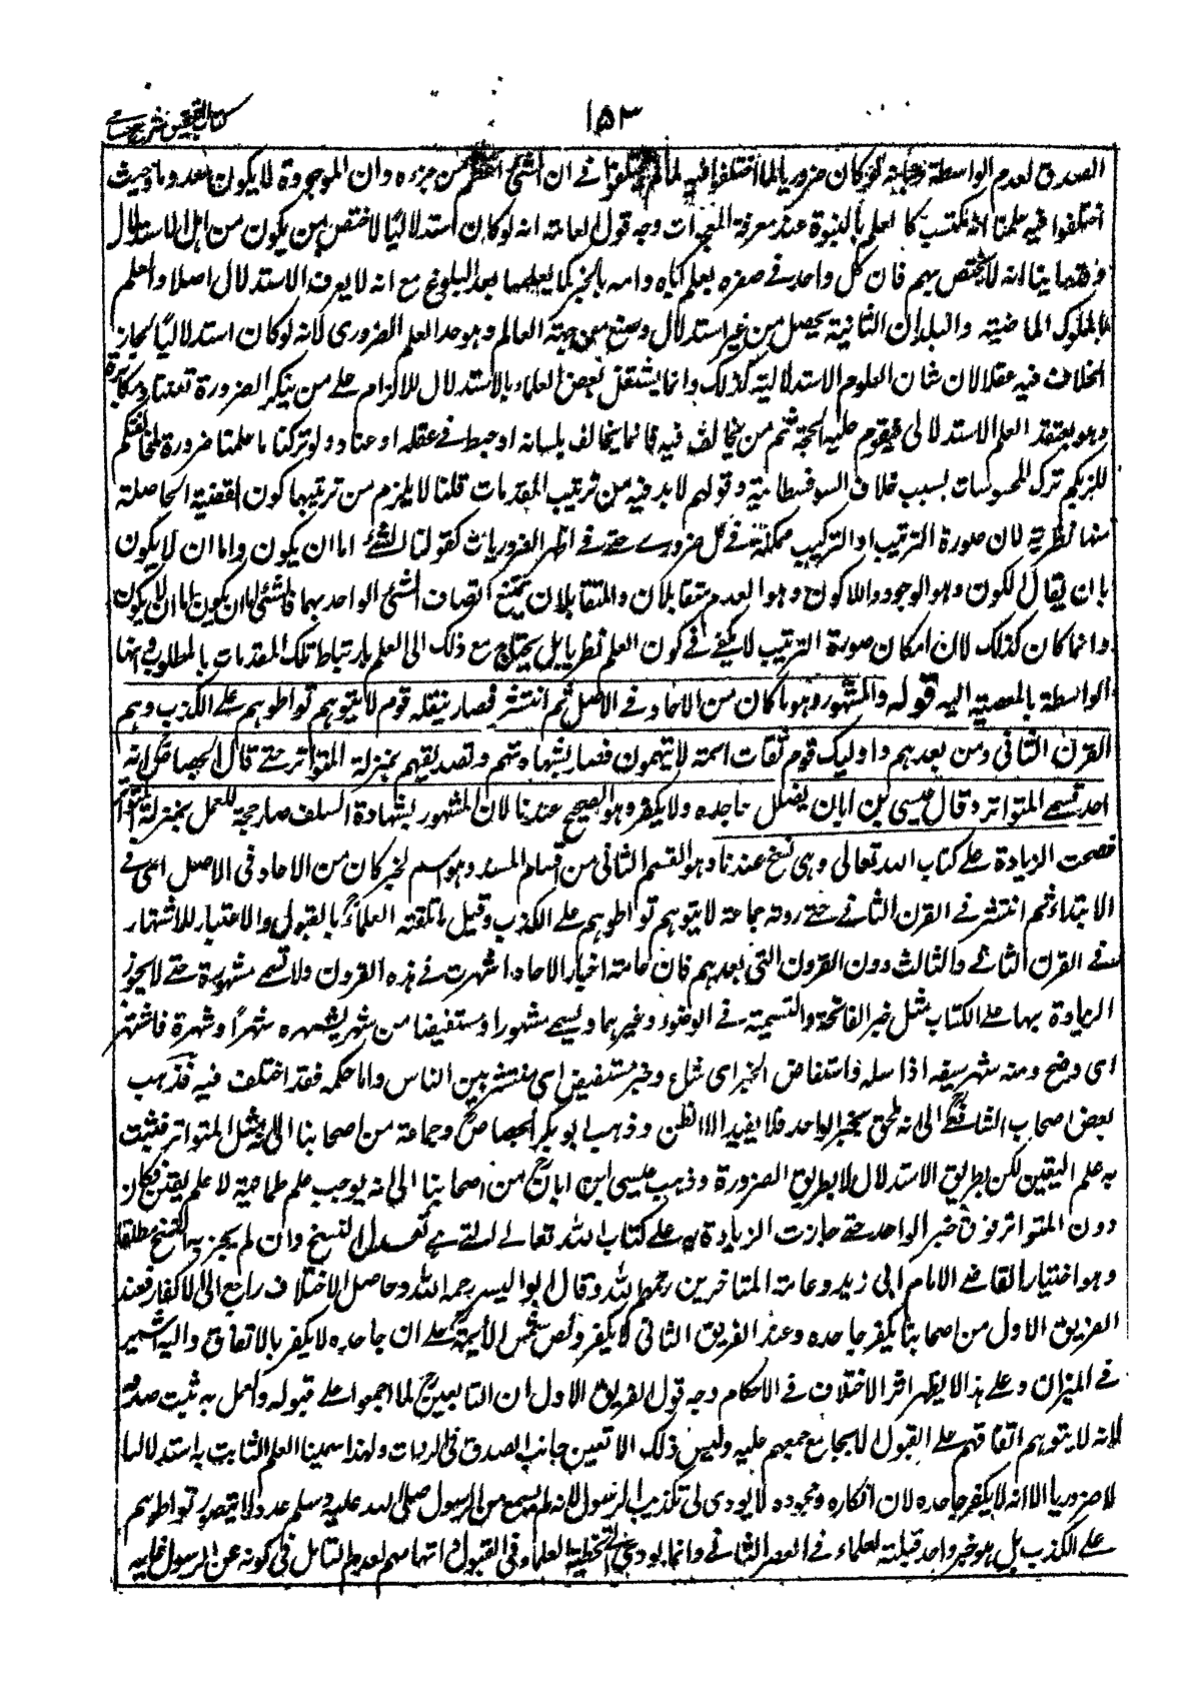 ١٥٣
كتاب التحقيق شرح حسامي
الصدق لعدم الواسطة ولانه لو كان ضروريا لما اختلفوا فيه لما لم يختلفوا في ان الشئ اعظم من جزءه وان الموجودة لا يكون معدوما وحيث
اختلفوا فيه علمنا انه مكتسب كا لعلم بالنبوة عند معرفة المعجزات وجه قول العامة انه لو كان استدلاليًا لاختص بمن يكون من اهل الاستدلال
وقد بينا انه لا يختص بهم فان كل واحد في صغره يعلم اباه وامه بالخبر كما يعلمهما بعد البلوغ مع انه لا يعرف الاستدلال اصلا والعلم
بالملوك الماضية والبلدان النائية يحصل من غير استدلال وصنع من جهة العالم وهو حد العلم الضرورى لانه لو كان استدلاليًا لجاز
الخلاف فيه عقلا لان شان العلوم الاستدلالية كذلك وانما يشتغل بعض العلماء بالاستدلال للالزام على من ينكر الضرورة تعنتا ومكابرة
وهو يعتقد العلم الاستدلالى فيقوم عليه الحجة ثم من يخالف فيه فانما يخالف بلسانه او خبط في عقله او عناد ولو تركنا ما علمنا ضرورة لمخالفتكم
للزمكم ترك المحسوسات بسبب خلاف السوفسطائية وقولهم لابد فيه من ترتيب المقدمات قلنا لا يلزم من ترتيبها كون القضية الحاصلة
منها نظرية لان صورة الترتيب او التركيب ممكنة في كل ضرورى حتى في اظهر الضروريات كقولنا الشئ اما ان يكون واما ان لا يكون
بان يقال الكون وهو الوجود واللاكون وهو العدم متقابلان والمتقابلان يمتنع اتصاف الشئ الواحد بهما فالشئ اما ان يكون واما ان لا يكون
وانما كان كذلك لان امكان صورة الترتيب لا يكفي في كون العلم نظريا بل يحتاج مع ذلك الى العلم بارتباط تلك المقدمات بالمطلوب وانها
الواسطة المفضية اليه قوله والمشهور وهو ما كان من الآحاد في الاصل ثم انتشر فصار ينقله قوم لا يتوهم تواطؤهم على الكذب وهم
القرن الثاني ومن بعدهم واوليك قوم ثقات ائمة لا يتهمون فصار بشهادتهم وتصديقهم بمنزلة المتواتر حتى قال الجصاص انه
احد قسمي المتواتر وقال عيسى بن ابان يضلل جاحده ولا يكفر وهو الصحيح عندنا لان المشهور بشهادة السلف صار حجة للعمل بمنزلة المتواتر
فصحت الزيادة على كتاب الله تعالى وهى نسخ عندنا وهو القسم الثاني من اقسام المسند وهو اسم لخبر كان من الآحاد في الاصل اى في
الابتداء ثم انتشر في القرن الثاني حتى روته جماعة لا يتوهم تواطؤهم على الكذب وقيل ما تلقته العلماء بالقبول والاعتبار للاشتهار
في القرن الثاني والثالث دون القرون التي بعدهم فان عامة اخبار الآحاد اشتهرت في هذه القرون ولا تسمى مشهورة حتى لا يجوز
الزيادة بها على الكتاب مثل خبر الفاتحة والتسمية في الوضوء وغيرهما ويسمى مشهورا ومستفيضا من شهر يشهر شهرًا وشهرة فاشتهر
اى وضح ومنه شهر سيفه اذا سله واستفاض الخبر اى شاع وخبر مستفيض اى منتشر بين الناس واما حكمه فقد اختلف فيه فذهب
بعض اصحاب الشافعي الى انه ملحق بخبر الواحد فلا يفيد الا الظن وذهب ابو بكر الجصاص وجماعة من اصحابنا الى انه مثل المتواتر فيثبت
به علم اليقين لكن بطريق الاستدلال لا بطريق الضرورة وذهب عيسى ابن ابان من اصحابنا الى انه يوجب علم طمانية لا علم يقين فكان
دون المتواتر فوق خبر الواحد حتى جازت الزيادة به على كتاب الله تعالى التي هي تعدل النسخ وان لم يجز به النسخ مطلقا
وهو اختيار القاضي الامام ابى زيد وعامة المتاخرين رحمهم الله وقال ابو اليسر رحمه الله وحاصل الاختلاف راجع الى الاكفار فعند
الفريق الاول من اصحابنا يكفر جاحده وعند الفريق الثاني لا يكفر ونص شمس الائمة على ان جاحده لا يكفر بالاتفاق واليه اشير
في الميزان وعلى هذا لا يظهر اثر الاختلاف في الاحكام وجه قول الفريق الاول ان التابعين لما اجمعوا على قبوله والعمل به ثبت صدقه
لانه لا يتوهم اتفاقهم على القبول الا بجامع جمعهم عليه وليس ذلك الا تعين جانب الصدق في الروات ولهذا سمينا العلم الثابت به استدلاليا
لا ضروريا الا انه لا يكفر جاحده لان انكاره وجحوده لا يودى الى تكذيب الرسول لانه لم يسمع من الرسول صلى الله عليه وسلم عدد لا يتصور تواطؤهم
على الكذب بل هو خبر واحد قبلته العلماء في العصر الثاني وانما يودى الى تخطية العلماء في القبول واتهامهم بعدم التامل فى كونه عن الرسول عليه